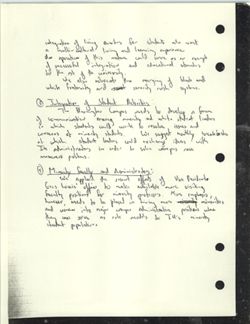 integration of living quarters for students who want
a multi-cultural living and learning experience.
The operation of this would serve as a
of successful integration and educational
for the rest of the university.
We also advocate the merging of black and
white fraternity and sorority system.
③ Integration of Student Activities
The Bloomington Campus needs to develop a form
of communication among minority and white student leaders
in which students could unite to resolve issues and
concerns of minority students. We suggest monthly breakfasts
at which student leaders could exchange ideas with
IU administrators in order to solve
numerous problems.
④ Minority Faculty and Administrators:
We applaud the recent efforts of Vice President
Gros Louis' office to make available more visiting
faculty positions for minority professors. More emphasis,
however, needs to be placed on hiring more minorities
and women into major administrative positions where
they can serve as role models to IU's minority
student population.